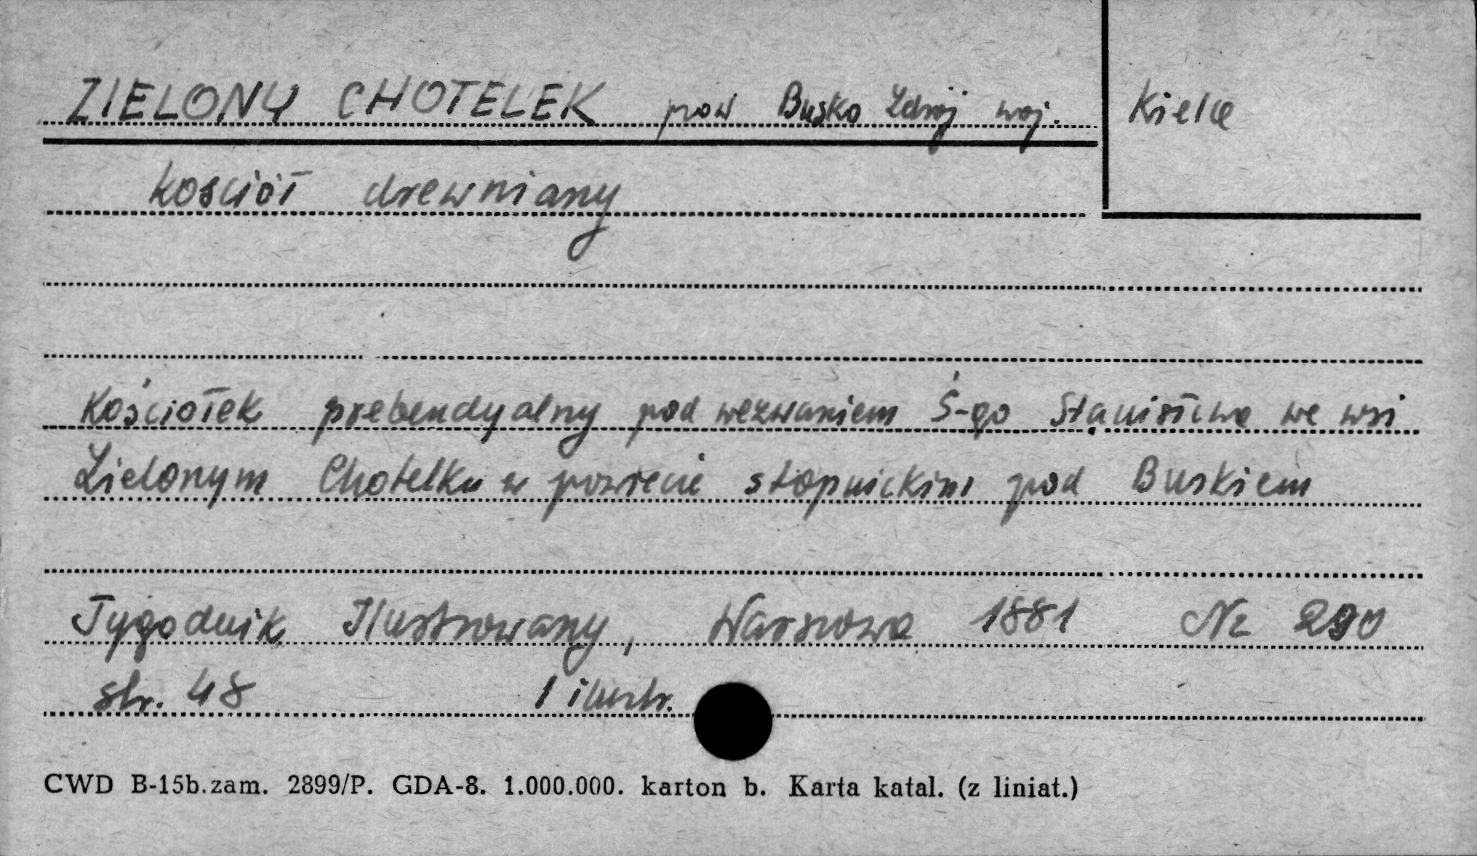 ZIELONY CHOTELEK pow Busko Zdrój woj. Kielce
kościół drewniany
Kościołek prebendyalny pod wezwaniem Ś-go Stanisława we wsi
Zielonym Chotelku w powiecie stopnickim pod Buskiem
Tygodnik Ilustrowany, Warszawa 1881 Nr 290
str. 48 1 ilustr.
CWD B-15b.zam. 2899/P. GDA-8. 1.000.000. karton b. Karta katal. (z liniat.)